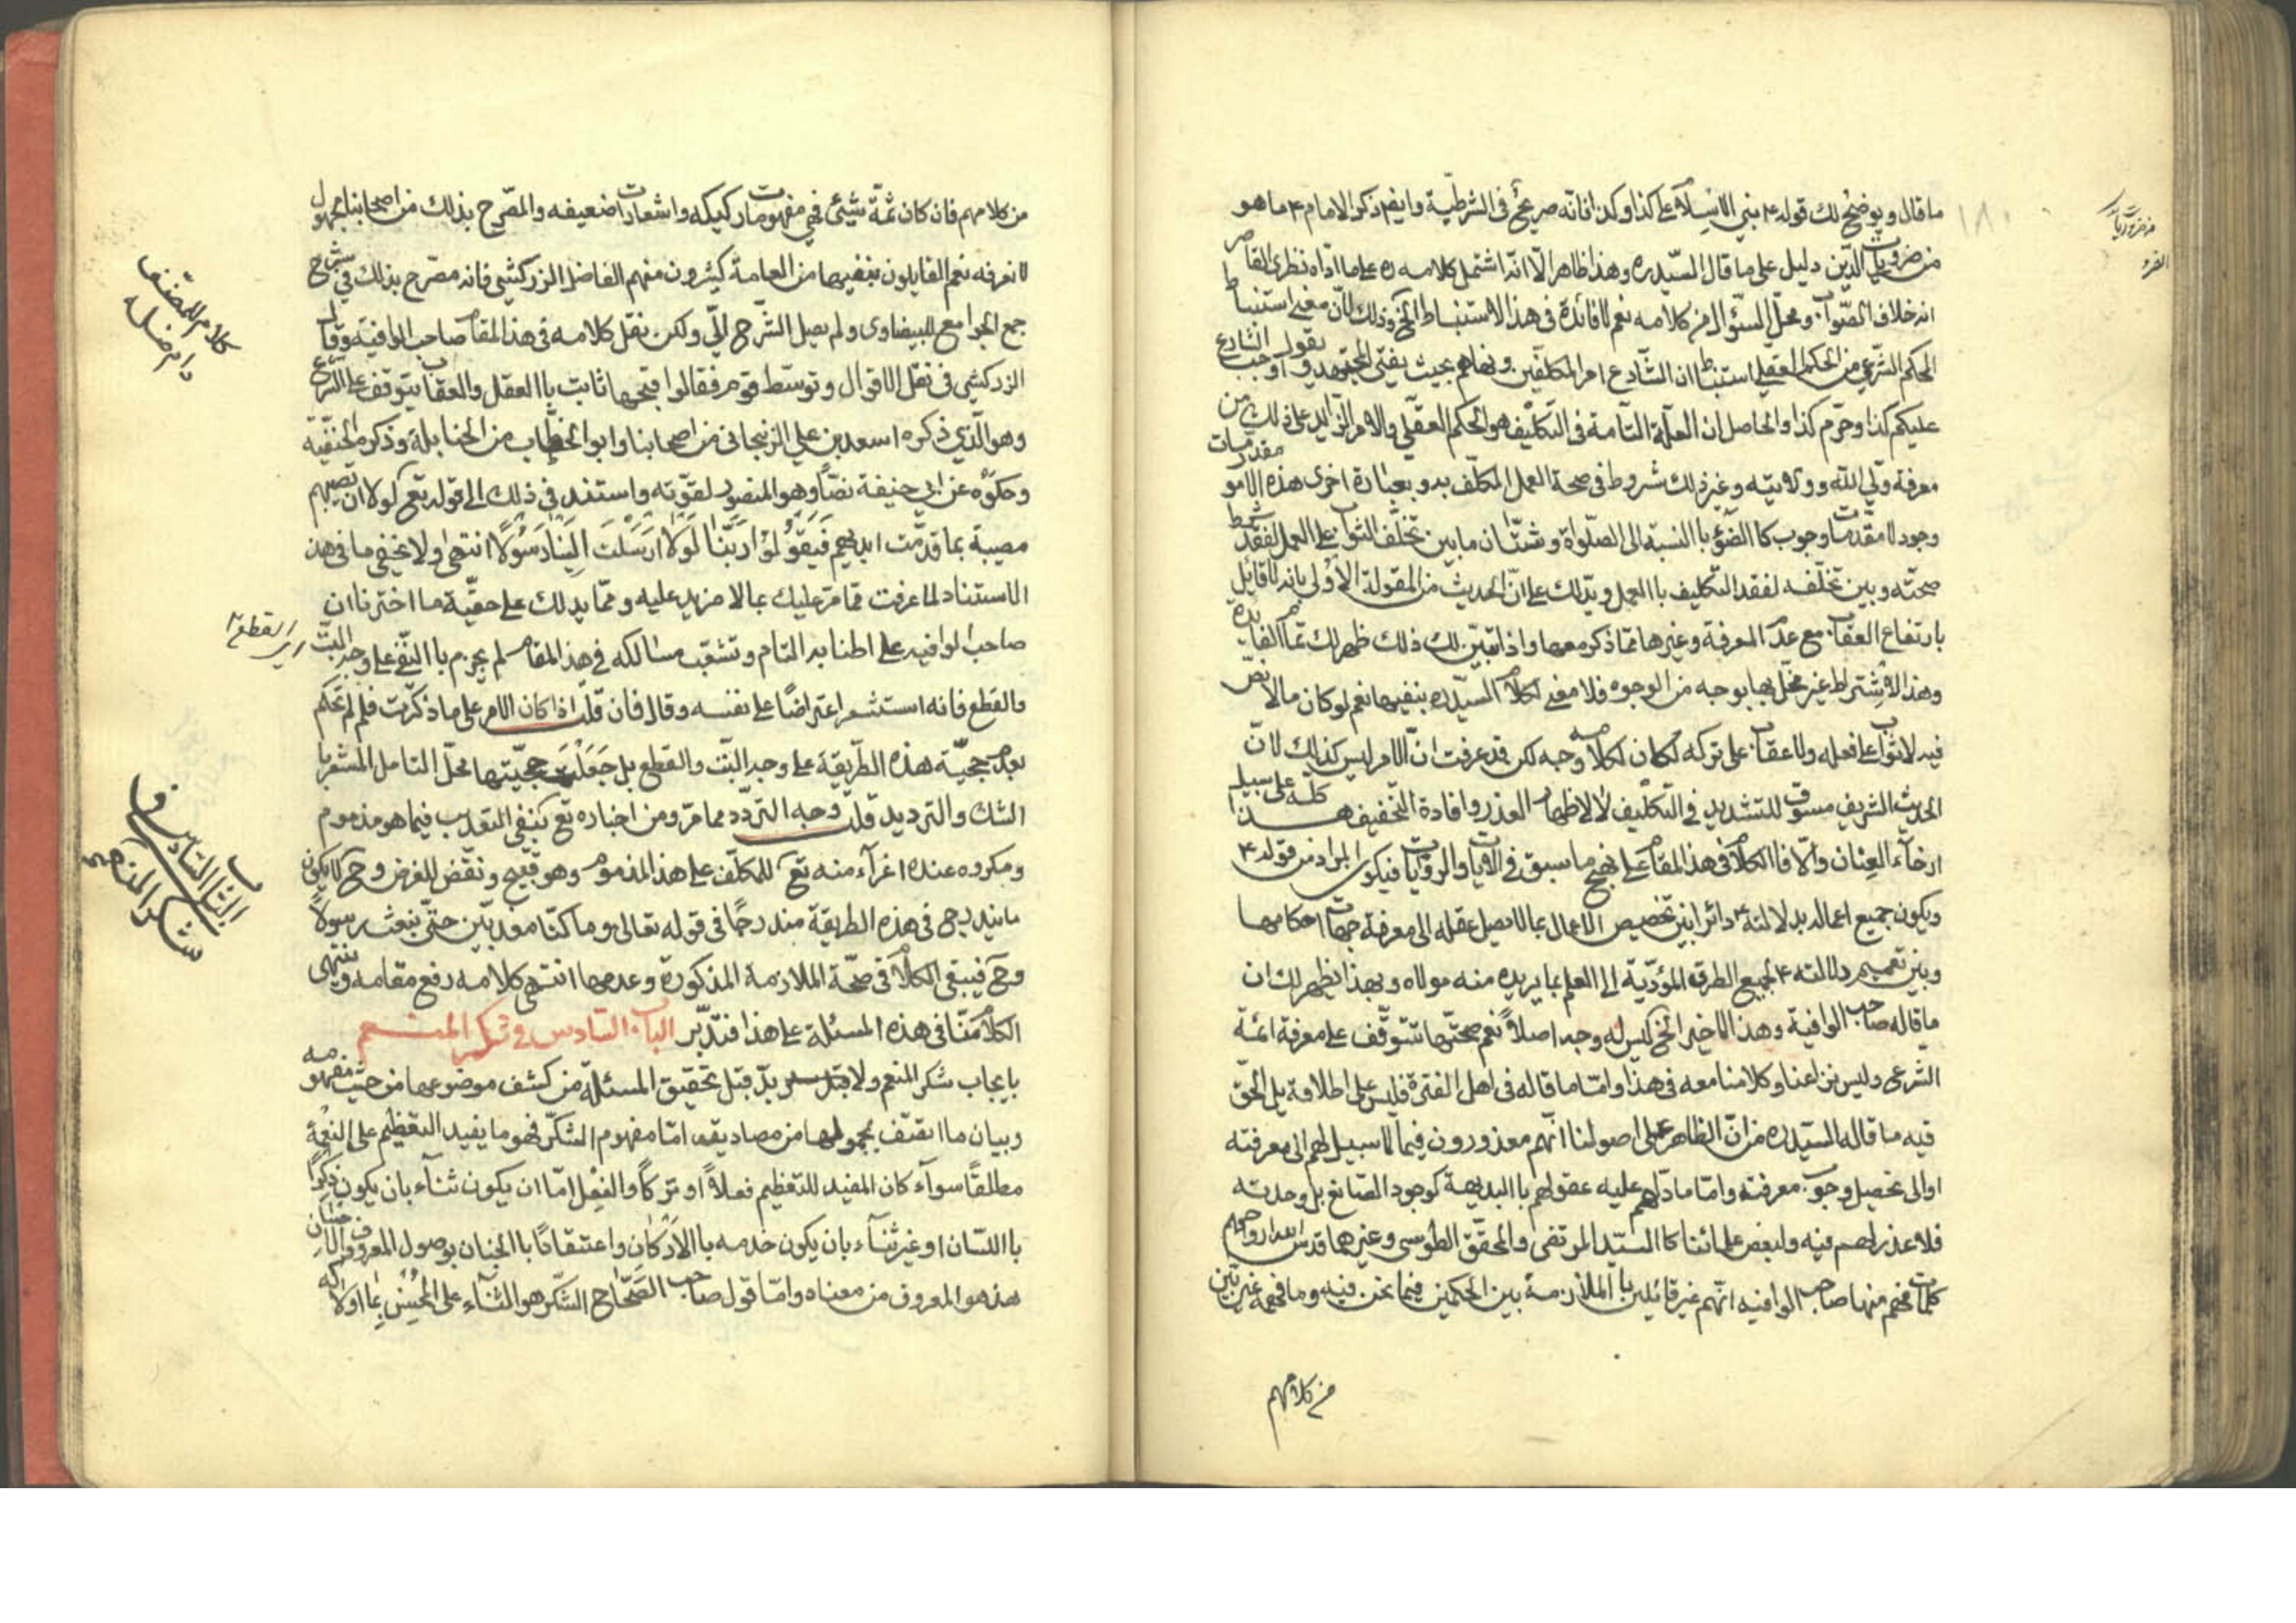 ما قال ويوضح لك قوله ۴ بني الاسلام على كذا وكذا فانه صريح في الشرطية وايضا ذكر الامام ۴ ما هو
من ضروريات الدين دليل على ما قال السيد ره وهذا ظاهر الا انه اشتمل كلامه ره على ما اداه نظري القاصر
انه خلاف الصواب ومحل السؤال من كلامه نعم لا فائدة في هذا الاستنباط الخ وذلك لان معنى استنباط
الحكم الشرعي من الحكم العقلي استنباط ان الشارع امر المكلفين ونهاهم بحيث يفتى المجتهد و يقول الشارع اوجب
عليكم كذا وحرم كذا والحاصل ان العلة التامة في التكليف هو الحكم العقلي والامر الزايد على ذلك من
معرفة ولي الله وولايته وغير ذلك شروط في صحة العمل المكلف به وبعبارة اخرى هذه الامور مقدمات
وجود لا مقدمات وجوب كالضوء باالنسبة الى الصلوة وشتان ما بين تخلف الثواب على العمل لفقد شرط
صحته وبين تخلفه لفقد التكليف باالعمل ويدلك على ان الحديث من المقولة الاولى بانه لا قايل
بارتفاع العقاب مع عدم المعرفة وغيرها مما ذكر معها واذا تبين لك ذلك ظهر لك تمام الفايدة
وهذا الاشتراط غير مخل بها بوجه من الوجوه فلا معنى لكلام السيد ره بنفيها نعم لو كان ما لا نص
فيه لا ثواب على فعله ولا عقاب على تركه لكان لكلامه وجه لكن قد عرفت ان الامر ليس كذلك لان
الحديث الشريف مسوق للتشديد في التكليف لا لاظهار العذر وافادة التخفيف هذا كله على سبيل
ارخاء العنان والا فاالكلام في هذا المقام على نهج ما سبق في الايات والروايات فيكون المراد من قوله ۴
ويكون جميع اعماله بدلالته ۴ دائرا بين تخصيص الاعمال بما لا يصل عقله الى معرفة جهات احكامها
وبين تعميم دلالته ۴ لجميع الطرق المؤدية الى العلم بما يريده منه مولاه وبهذا يظهر لك ان
ما قاله صاحب الوافية وهذا الاخير الخ ليس له وجه اصلا نعم صحتها تتوقف على معرفة ائمة
الشرعى وليس نزاعنا وكلامنا معه في هذا واما ما قاله في اهل الفترة فليس على اطلاقه بل الحق
فيه ما قاله السيد ره من ان الظاهر على اصولنا انهم معذورون فيما لا سبيل لهم الى معرفته
او الى تحصيل وجوب معرفته واما ما دلهم عليه عقولهم باالبديهة كوجود الصانع بل وحدته
فلا عذر لهم فيه ولبعض علمائنا كاالسيد المرتضى والمحقق الطوسي وغيرهما قدس الله ارواحهم
كلمات فهم منها صاحب الوافيه انهم غير قائلين باالملازمة بين الحكمين فيما نحن فيه وما فهمه غير بين
من كلامهم
من كلامهم فان كان ثمة شيئ فهي مفهومات ركيكه واشعارات ضعيفه والمصرح بذلك من اصحابنا مجهول
لا نعرفه نعم القايلون بنفيها من العامة كثيرون منهم الفاضل الزركشي فانه مصرح بذلك في شرح
جمع الجوامع للبيضاوى ولم يصل الشرح الي ولكن نقل كلامه في هذا المقام صاحب الوافية وقال
الزركشي في نقل الاقوال وتوسط قوم فقالوا قبحها ثابت باالعقل والعقاب يتوقف على الشرع
وهو الذي ذكره اسعد بن علي الزنجاني من اصحابنا وابو الخطاب من الحنابلة وذكره الحنفية
وحكوه عن ابي حنيفة نصا وهو المنصور لقوته واستند في ذلك الى قوله تع لولا ان تصيبهم
مصيبة بما قدمت ايديهم فيقولوا ربنا لولا ارسلت الينا رسولا انتهى ولا يخفى ما في هذا
الاستناد لما عرفت مما مر عليك بما لا مزيد عليه ومما يدلك على حقية ما اخترنا ان
صاحب الوافيه على اطنابه التام وتشعب مسالكه في هذا المقام لم يجزم باالنفي على وجه البت
والقطع فانه استشعر اعتراضا على نفسه وقال فان قلت اذا كان الامر على ما ذكرت فلم لم تحكم
بعدم حجية هذه الطريقة على وجه البت والقطع بل جعلت حجيتها محل التامل المشعر با
الشك والترديد قلت وجه التردد مما مر ومن اخباره تع كنفي التعذيب فيما هو مذموم
ومكروه عنده اغرآء منه تع للمكلف على هذا المذموم وهو قبيح ونقض للغرض وح لا يكون
ما يندرج في هذه الطريقة مندرجا في قوله تعالى وما كنا معذبين حتى نبعث رسولا
وح فيبقى الكلام في صحة الملازمة المذكورة وعدمها انتهى كلامه رفع مقامه وينتهى
الكلام منا في هذه المسئلة على هذا فتدبر الباب السادس في شكر المنعم
بايجاب شكر المنعم ولا بد قبل تحقيق المسئلة من كشف موضوعها من حيث مفهومه
وبيان ما من مصاديقه اما مفهوم الشكر فهو ما يفيد التعظيم على النعمة
مطلقا سوآء كان المفيد للتعظيم فعلا او تركا والفعل اما ان يكون ثنآء بان يكون ذكرا
بااللسان او غير ثنآء بان يكون خدمه باالاركان واعتقادا باالجنان بوصول المعروف
هذا هو المعروف من معناه واما قول صاحب الصحاح الشكر هو الثناء على المحسن بما اولاكه
كلام المصنف
دام ظله
اي القطع
الباب السادس في
شكر المنعم